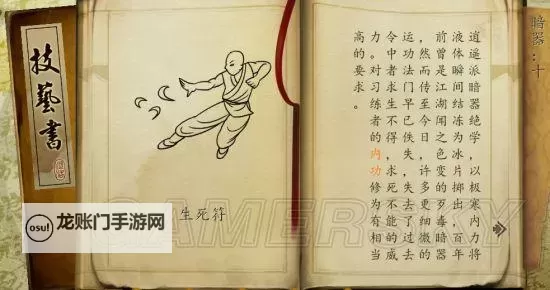 暗器:十
逍遥派暗器绝学,以极寒内力将
液体瞬间结冻为冰片掷出,百年
前曾是江湖闻之色变的歹毒暗器
,然而传至今日,许多更细微的
运功法门早已佚失,失去了过去
令中者求生不得,求死不能的威
力。对习练者的内功修为有相当
高的要求。
技藝書
生死符
osu!
龙账门手游网
GAMERSKY